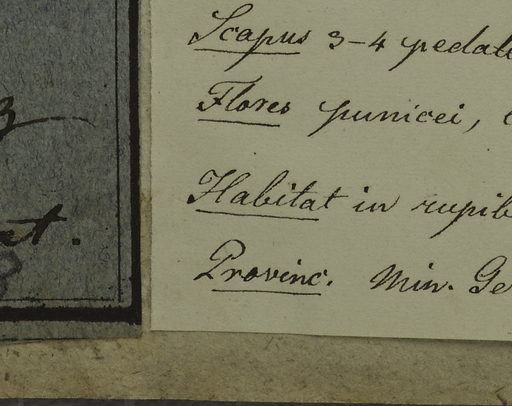 Scapus 3-4 pedal
Flores punicei,
Habitat in rupib
Provinc. Min. Ge
3
at.